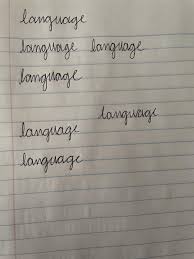 language
language language
language
language
language
language